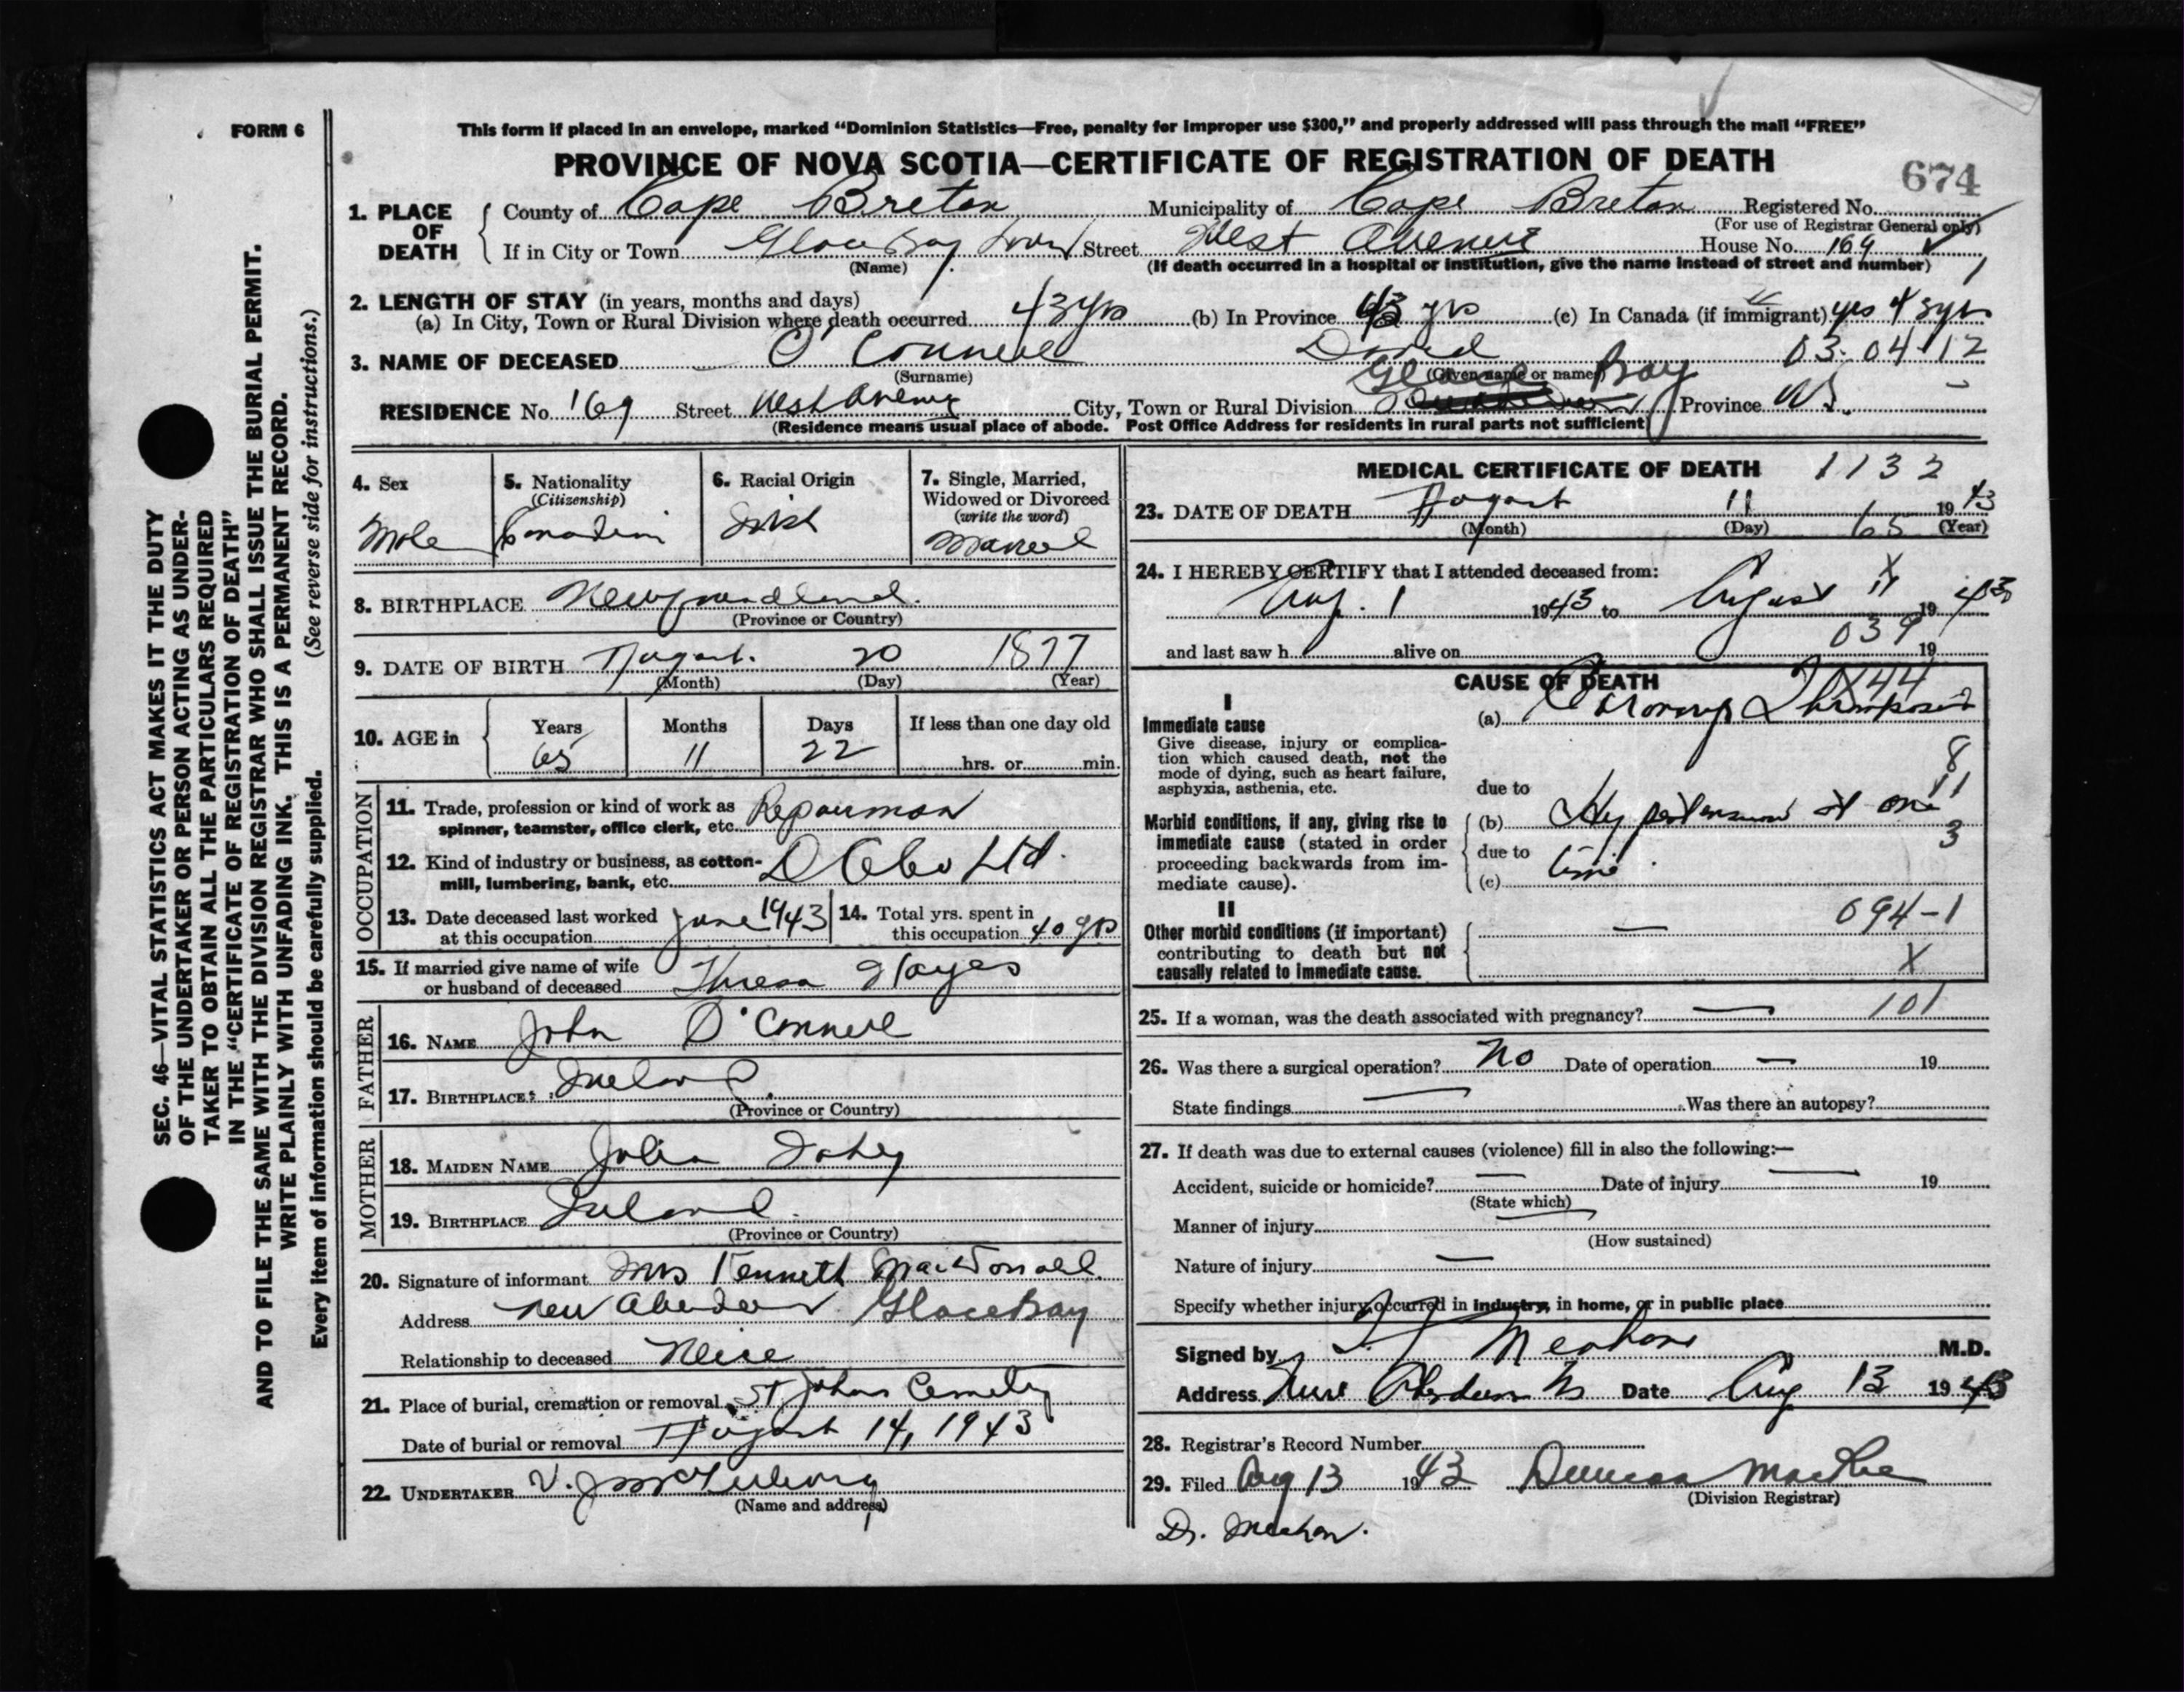 FORM 6
This form if placed in an envelope, marked “Dominion Statistics—Free, penalty for improper use $300,” and properly addressed will pass through the mail “FREE”
PROVINCE OF NOVA SCOTIA—CERTIFICATE OF REGISTRATION OF DEATH
674
1. PLACE OF DEATH
County of Cape Breton Municipality of Cape Breton Registered No.
(For use of Registrar General only)
If in City or Town Glace Bay Town Street West Avenue House No. 169
(Name) (If death occurred in a hospital or institution, give the name instead of street and number)
2. LENGTH OF STAY (in years, months and days)
(a) In City, Town or Rural Division where death occurred 43 yrs (b) In Province 43 yrs (c) In Canada (if immigrant) yes 43 yrs
3. NAME OF DECEASED O'Connell David 03-04-12
(Surname) (Given name or names)
RESIDENCE No. 169 Street West Avenue City, Town or Rural Division Glace Bay Province NS.
(Residence means usual place of abode. Post Office Address for residents in rural parts not sufficient)
4. Sex
Male
5. Nationality
(Citizenship)
Canadian
6. Racial Origin
Irish
7. Single, Married, Widowed or Divorced
(write the word)
Married
8. BIRTHPLACE Newfoundland.
(Province or Country)
9. DATE OF BIRTH August. 20 1877
(Month) (Day) (Year)
10. AGE in
Years Months Days If less than one day old
65 11 22 hrs. or min.
OCCUPATION
11. Trade, profession or kind of work as spinner, teamster, office clerk, etc. Repairman
12. Kind of industry or business, as cotton-mill, lumbering, bank, etc. Ltd.
13. Date deceased last worked at this occupation June 1943
14. Total yrs. spent in this occupation 40 yrs
15. If married give name of wife or husband of deceased Theresa Hayes
FATHER
16. NAME John O'Connell
17. BIRTHPLACE Ireland
(Province or Country)
MOTHER
18. MAIDEN NAME Julia
19. BIRTHPLACE Ireland.
(Province or Country)
20. Signature of informant Mrs Kenneth MacDonald.
Address New Aberdeen Glace Bay
Relationship to deceased Neice
21. Place of burial, cremation or removal St Johns Cemetery
Date of burial or removal August 14, 1943
22. UNDERTAKER V. J.
(Name and address)
MEDICAL CERTIFICATE OF DEATH 1132
23. DATE OF DEATH August 11 1943
(Month) (Day) 65 (Year)
24. I HEREBY CERTIFY that I attended deceased from: X
Aug. 1 1943 to August 11 1943
039
and last saw h alive on 19
CAUSE OF DEATH
I
Immediate cause
Give disease, injury or complication which caused death, not the mode of dying, such as heart failure, asphyxia, asthenia, etc.
(a) Coronary Thrombosis
due to
8
11
Morbid conditions, if any, giving rise to immediate cause (stated in order proceeding backwards from immediate cause).
(b) Hypertension at one
due to time.
3
(c)
II
Other morbid conditions (if important) contributing to death but not causally related to immediate cause.
— 094-1
X
25. If a woman, was the death associated with pregnancy? — 101
26. Was there a surgical operation? No Date of operation — 19
State findings — Was there an autopsy?
27. If death was due to external causes (violence) fill in also the following:—
Accident, suicide or homicide? — Date of injury — 19
(State which)
Manner of injury
(How sustained)
Nature of injury —
Specify whether injury occurred in industry, in home, or in public place
Signed by Meahan M.D.
Address New Aberdeen NS Date Aug 13 1943
28. Registrar's Record Number
29. Filed Aug 13 1943 Duncan MacRae
(Division Registrar)
Dr. Meahan.
SEC. 46—VITAL STATISTICS ACT MAKES IT THE DUTY
OF THE UNDERTAKER OR PERSON ACTING AS UNDER-
TAKER TO OBTAIN ALL THE PARTICULARS REQUIRED
IN THE “CERTIFICATE OF REGISTRATION OF DEATH”
AND TO FILE THE SAME WITH THE DIVISION REGISTRAR WHO SHALL ISSUE THE BURIAL PERMIT.
WRITE PLAINLY WITH UNFADING INK. THIS IS A PERMANENT RECORD.
Every item of information should be carefully supplied. (See reverse side for instructions.)